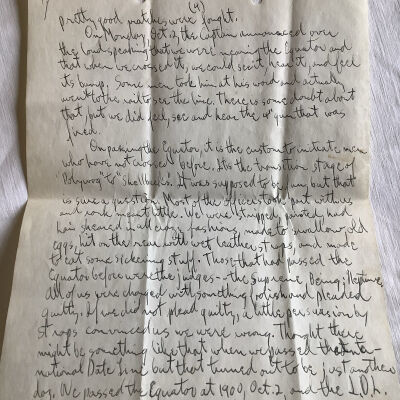 (4)
pretty good matches were fought.
On Monday, Oct. 2, the Captain announced over
the loud-speaking that we were nearing the Equator and
that when we crossed it, we could see it, hear it, and feel
its bump. Some men took him at his word and actually
went to the rail to see the line. There is some doubt about
that, but we did feel, see and hear the 4" gun that was
fired.
On passing the Equator, it is the custom to initiate men
who have not crossed before. It is the transition stage of
"Polywog" to "shellback". It was supposed to be fun, but that
is sure a question. Most of the officers took part with us
and rank meant little. We were stripped, painted, had
hair sheared in various fashions, made to swallow old
eggs, hit on the rear with wet leather straps, and made
to eat some sickening stuff. Those that had passed the
Equator before were the judges - the Supreme Being; Neptune,
all of us were charged with something foolish and pleaded
guilty. If we did not plead guilty, a little persuasion by
straps convinced us we were wrong. Thought there
might be something like that when we passed the Inter-
national Date Line but that turned out to be just another
day. We passed the Equator at 1900, Oct. 2, and the I.D.L.